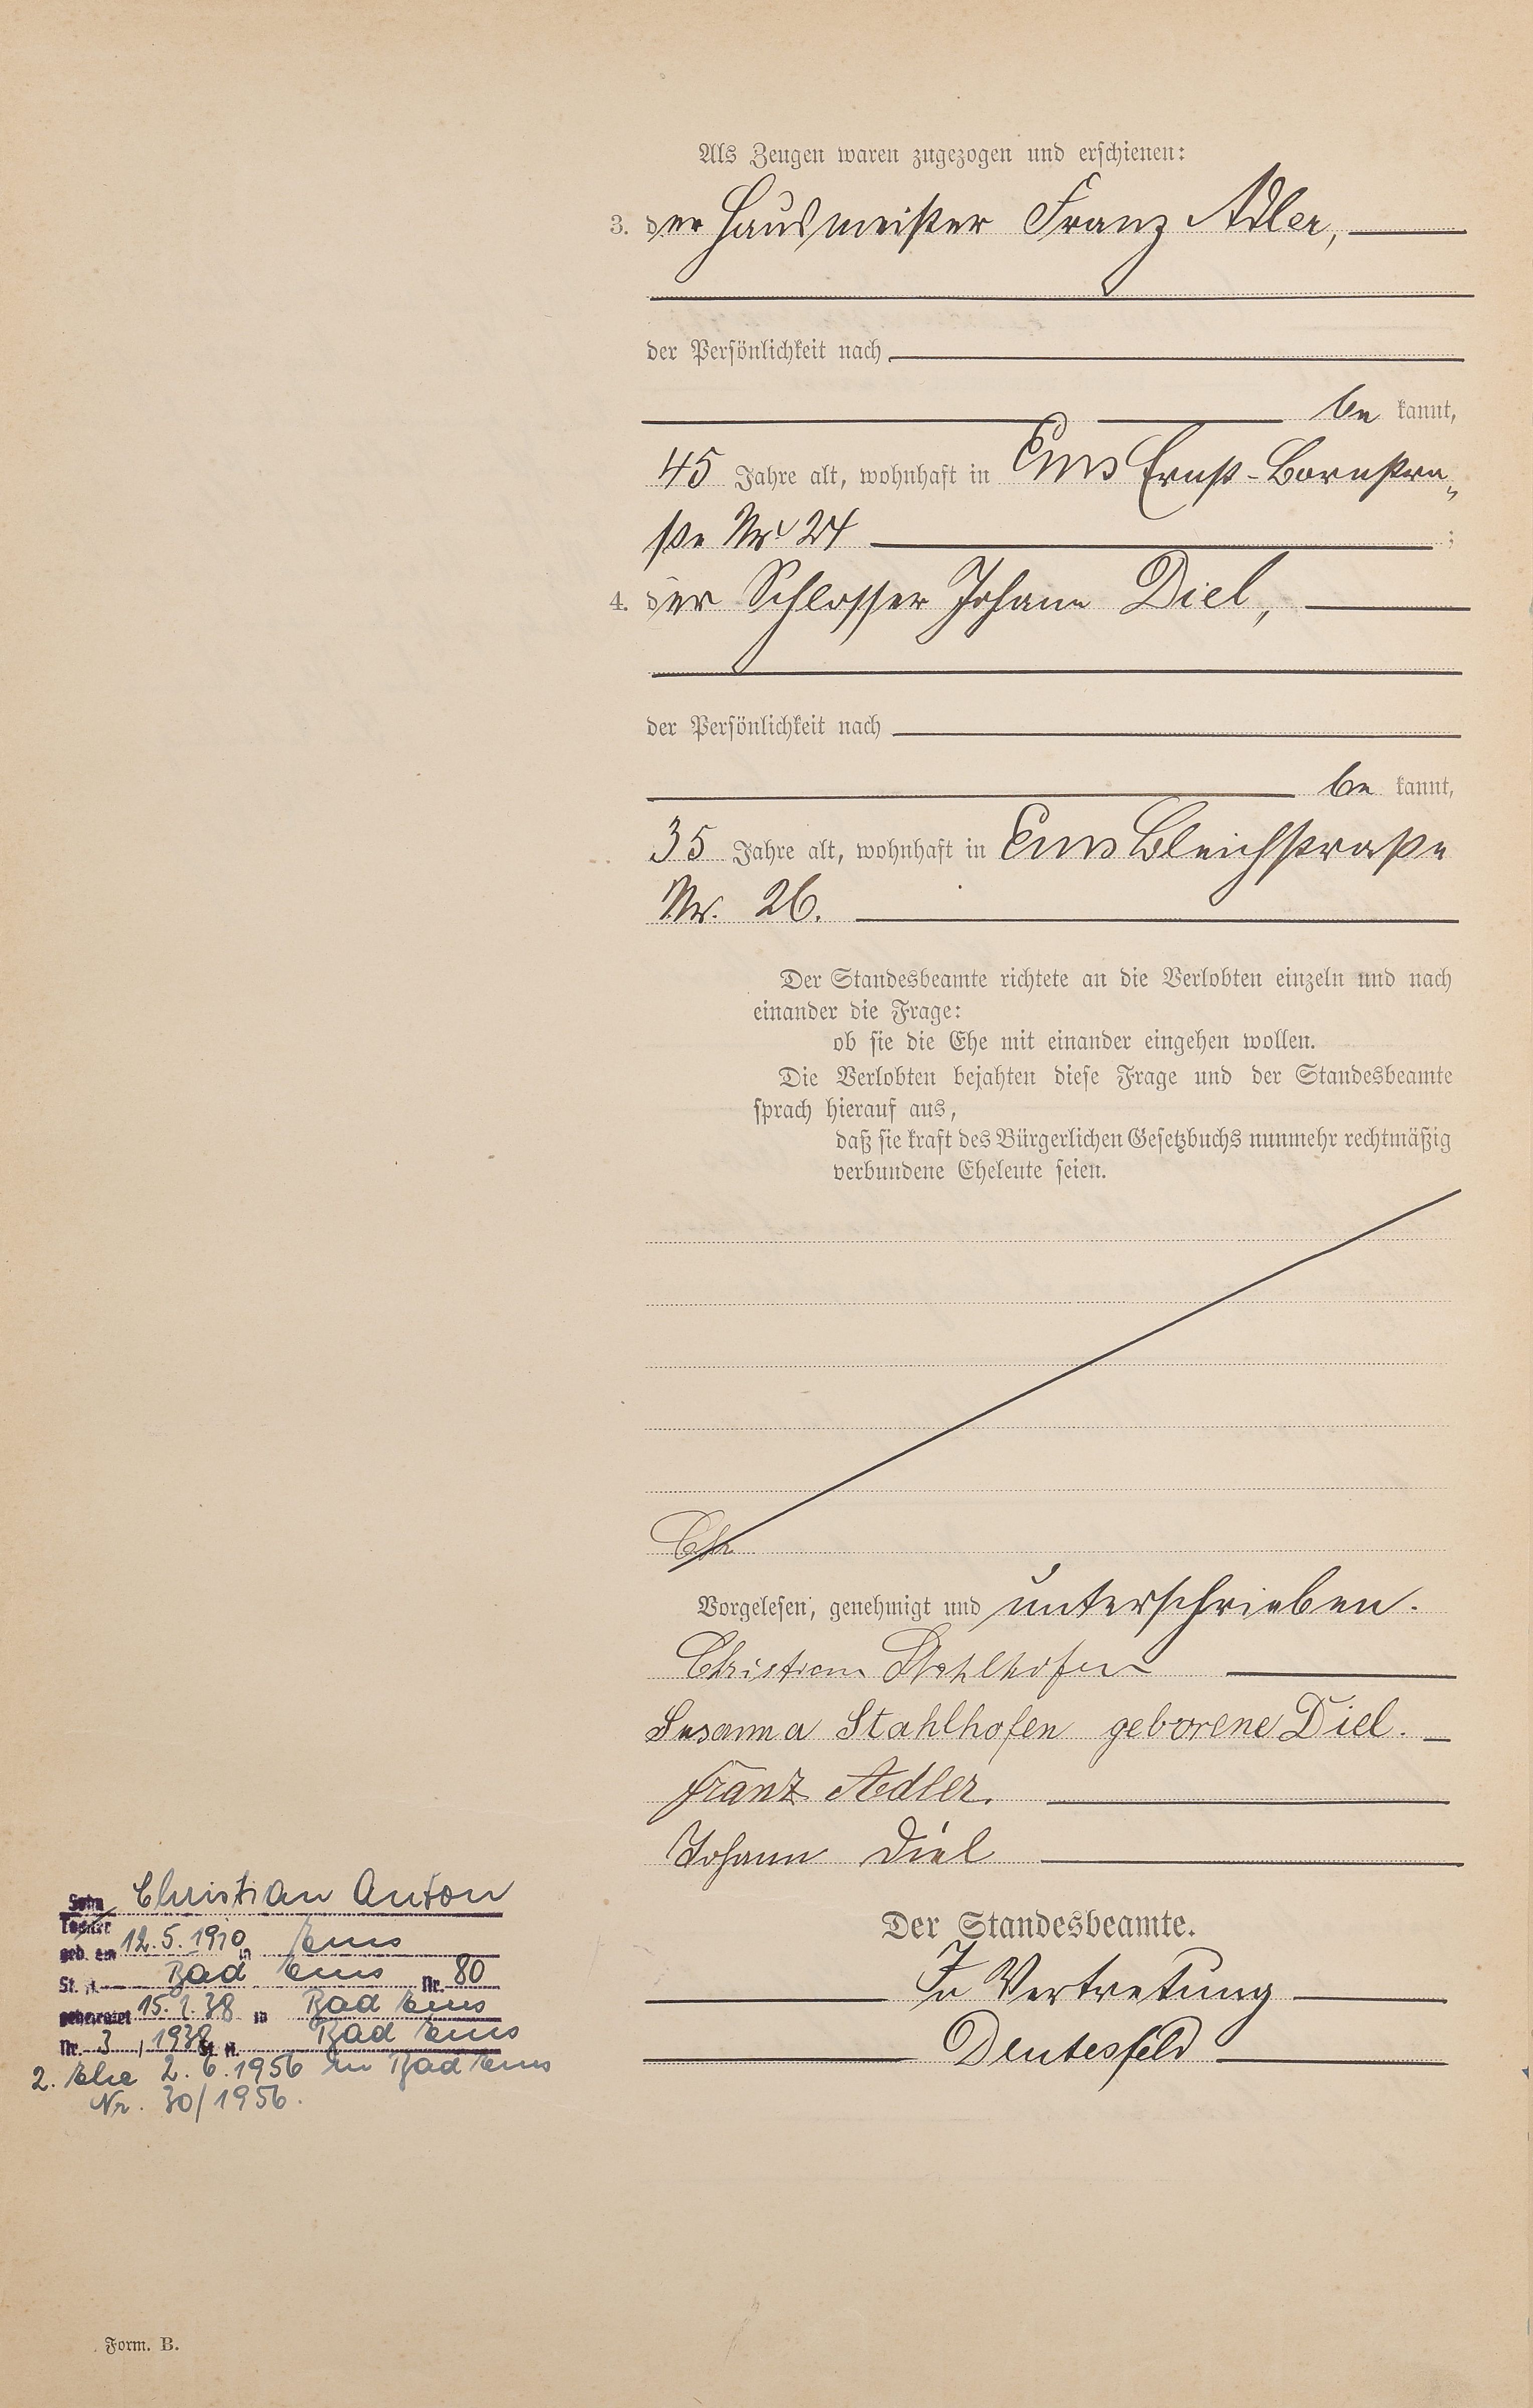 Als Zeugen waren zugezogen und erschienen:
3. der Hausmeister Franz Adler,
der Persönlichkeit nach
be kannt,
45 Jahre alt, wohnhaft in Ems Ernst-Bornstra-
ße Nr. 24 ;
4. der Schlosser Johann Diel,
der Persönlichkeit nach
be kannt,
35 Jahre alt, wohnhaft in Ems Bleichstraße
Nr. 26.
Der Standesbeamte richtete an die Verlobten einzeln und nach
einander die Frage:
ob sie die Ehe mit einander eingehen wollen.
Die Verlobten bejahten diese Frage und der Standesbeamte
sprach hierauf aus,
daß sie kraft des Bürgerlichen Gesetzbuchs nunmehr rechtmäßig
verbundene Eheleute seien.
Vorgelesen, genehmigt und unterschrieben.
Christian Stahlhofen
Susanna Stahlhofen geborene Diel.
Franz Adler.
Johann Diel
Der Standesbeamte.
In Vertretung
Deutesfeld
Sohn Christian Anton
Tochter
geb. am 12.5.1910 in Ems
St. A. Bad Ems Nr. 80
geheiratet 15.1.38 in Bad Ems
Nr. 3, 1938 St. A. Bad Ems
2. Ehe 2.6.1956 in Bad Ems
Nr. 30/1956.
Form. B.